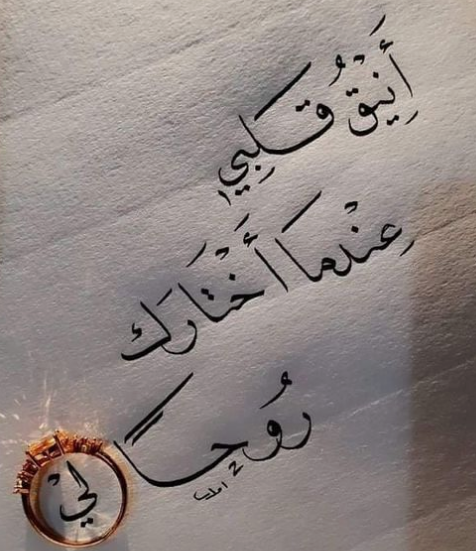 أَنِيْقٌ قَلبِي
عِنْدمَا أَخْتَارَك
رُوحاً لِيْ